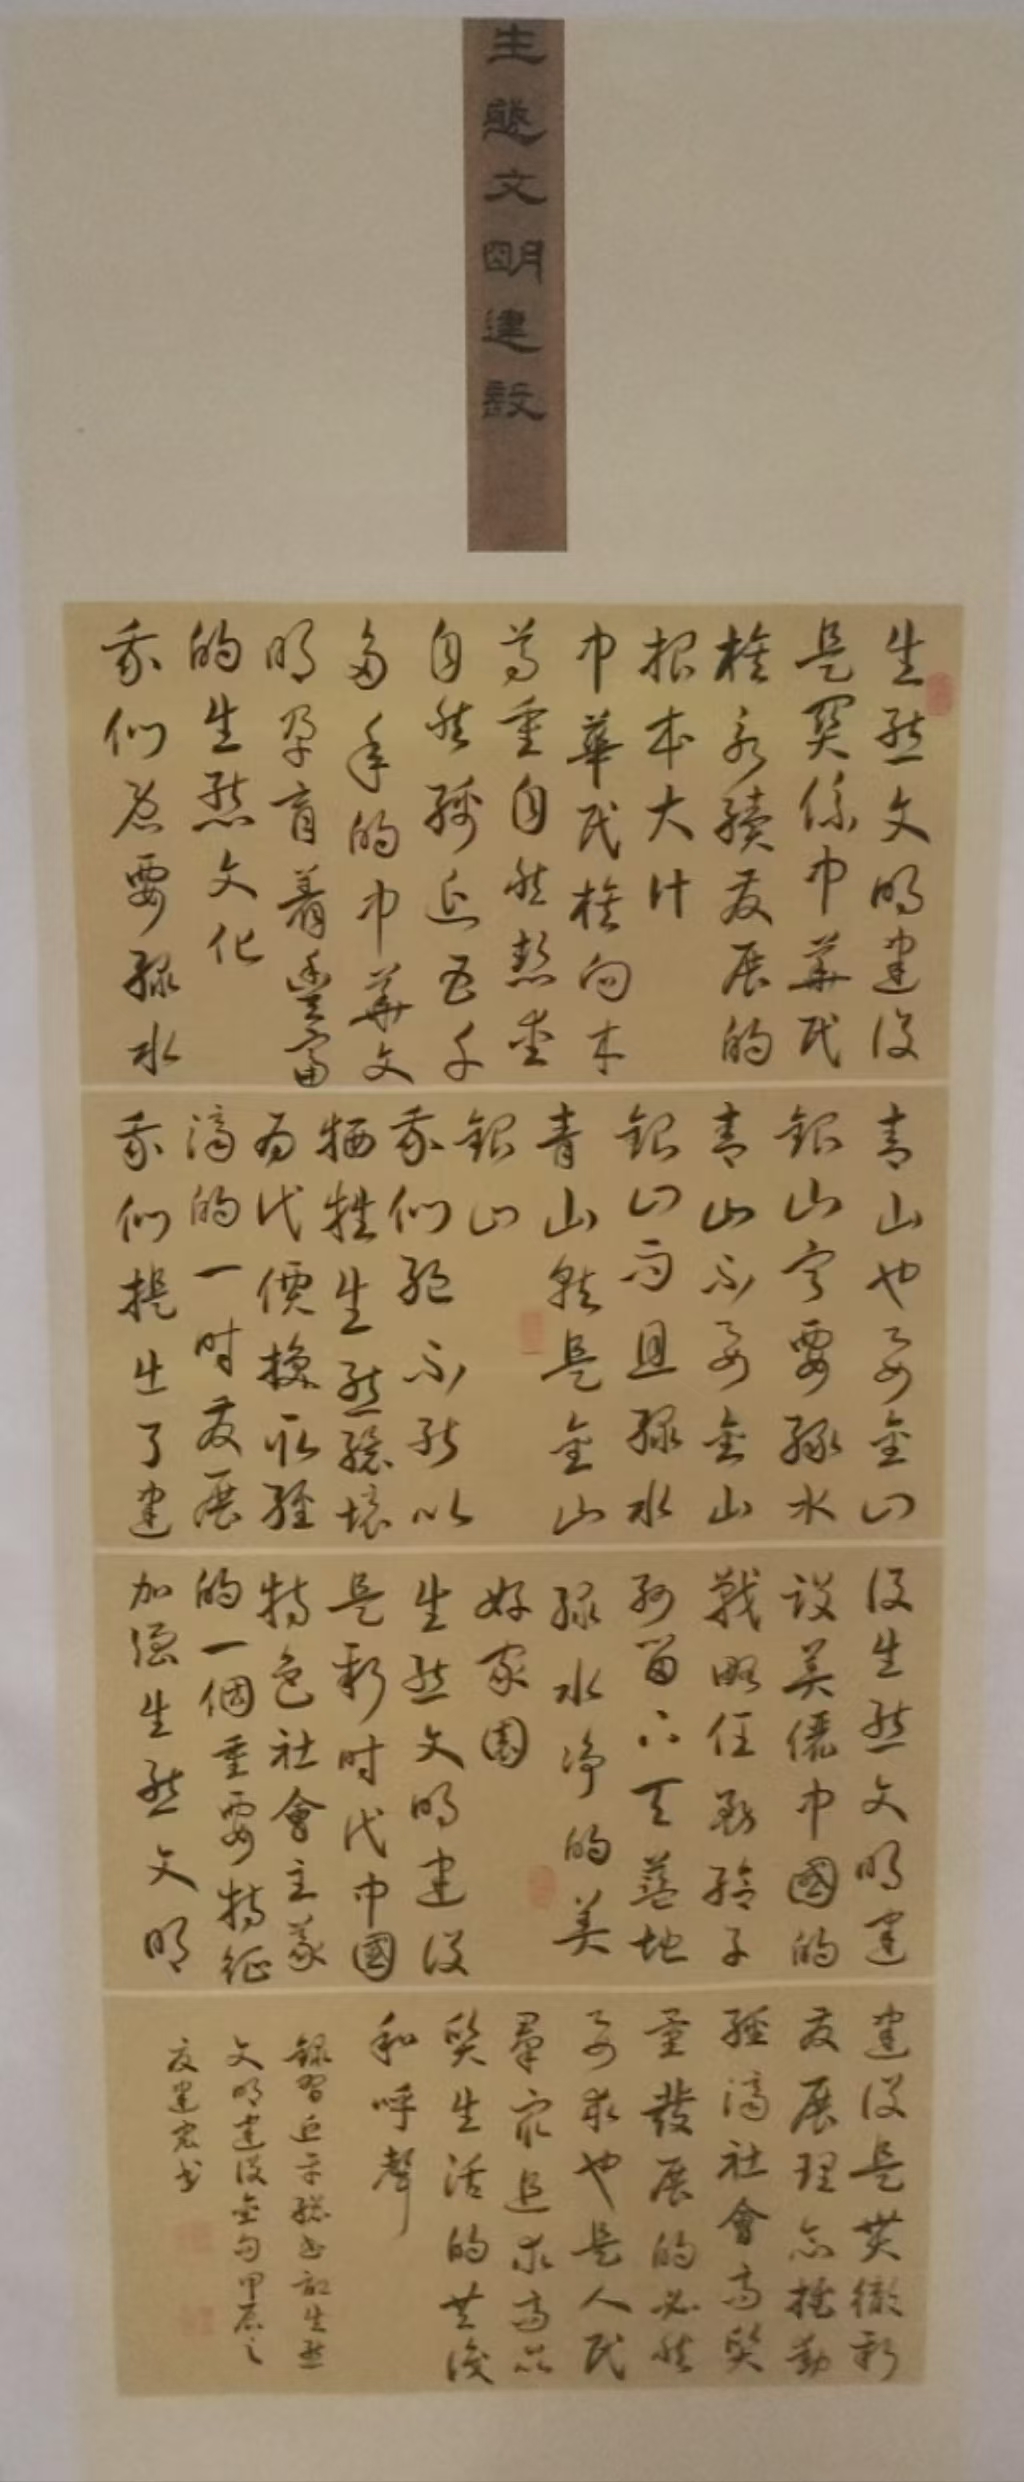 生態文明建設
生態文明建設
是関係中華民
族永續发展的
根本大计
中華民族向来
尊重自然熱爱
自然绵延五千
多年的中華文
明孕育着豊富
的生態文化
我们既要绿水
青山也要金山
银山宁要绿水
青山不要金山
银山而且绿水
青山就是金山
银山
我们绝不能以
牺牲生態環境
为代價换取經
濟的一时发展
我们提出了建
設生態文明建
設美儷中國的
戰略任務给子
孙留下天蓝地
绿水净的美
好家園
生態文明建設
是新时代中國
特色社會主義
的一個重要特征
加强生態文明
建設是贯徹新
发展理念推動
經濟社會高质
量發展的必然
要求也是人民
羣众追求高品
质生活的共識
和呼聲
録習近平總书記生態
文明建設金句甲辰之
夏建宏书